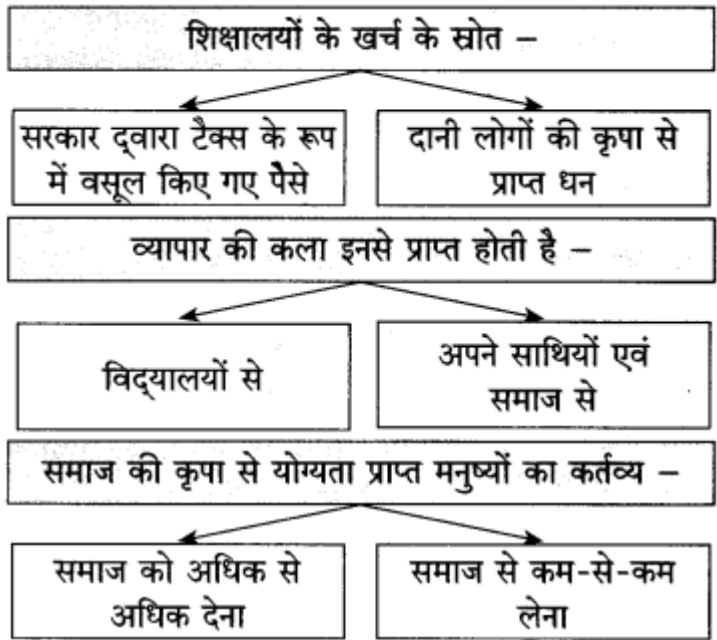 शिक्षालयों के खर्च के स्रोत –
सरकार द्‌वारा टैक्स के रूप
में वसूल किए गए पैसे
दानी लोगों की कृपा से
प्राप्त धन
व्यापार की कला इनसे प्राप्त होती है –
विद्‌यालयों से
अपने साथियों एवं
समाज से
समाज की कृपा से योग्यता प्राप्त मनुष्यों का कर्तव्य –
समाज को अधिक से
अधिक देना
समाज से कम-से-कम
लेना